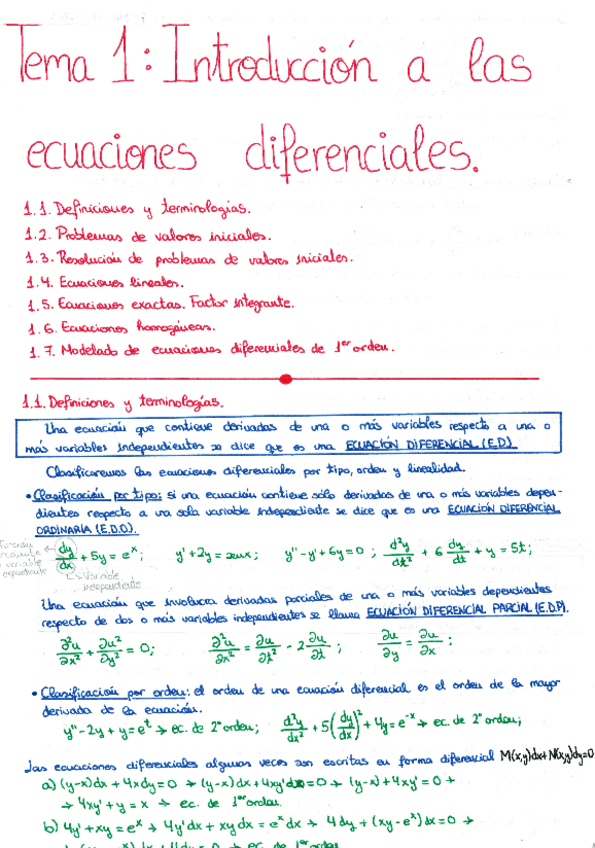 Tema 1: Introducción a las
ecuaciones diferenciales.
1.1. Definiciones y terminologías.
1.2. Problemas de valores iniciales.
1.3. Resolución de problemas de valores iniciales.
1.4. Ecuaciones lineales.
1.5. Ecuaciones exactas. Factor integrante.
1.6. Ecuaciones homogéneas.
1.7. Modelado de ecuaciones diferenciales de 1er orden.
1.1. Definiciones y terminologías.
Una ecuación que contiene derivadas de una o más variables respecto a una o
más variables independientes se dice que es una ECUACIÓN DIFERENCIAL (E.D).
Clasificaremos las ecuaciones diferenciales por tipo, orden y linealidad.
• Clasificación por tipo: si una ecuación contiene sólo derivadas de una o más variables depen-
dientes respecto a una sola variable independiente se dice que es una ECUACIÓN DIFERENCIAL
ORDINARIA (E.D.O).
dy/dx + 5y = e^x; y' + 2y = senx; y'' - y' + 6y = 0; d²y/dt² + 6 dy/dt + y = 5t;
variable
dependiente
Variable
independiente
Una ecuación que involucra derivadas parciales de una o más variables dependientes
respecto de dos o más variables independientes se llama ECUACIÓN DIFERENCIAL PARCIAL (E.D.P).
∂²u/∂x² + ∂u²/∂y² = 0; ∂²u/∂x² = ∂u/∂t² - 2 ∂u/∂t; ∂u/∂y = ∂u/∂x;
• Clasificación por orden: el orden de una ecuación diferencial es el orden de la mayor
derivada de la ecuación.
y'' - 2y + y = e^t → ec. de 2º orden; d²y/dx² + 5(dy/dx)² + 4y = e^-x → ec. de 2º orden;
Las ecuaciones diferenciales algunas veces son escritas en forma diferencial M(x,y)dx+N(x,y)dy=0
a) (y-x)dx + 4xdy = 0 → (y-x)dx + 4xy'dx = 0 → (y-x) + 4xy' = 0 →
→ 4xy' + y = x → ec. de 1er orden.
b) 4y' + xy = e^x → 4y'dx + xydx = e^x dx → 4dy + (xy-e^x)dx = 0 →